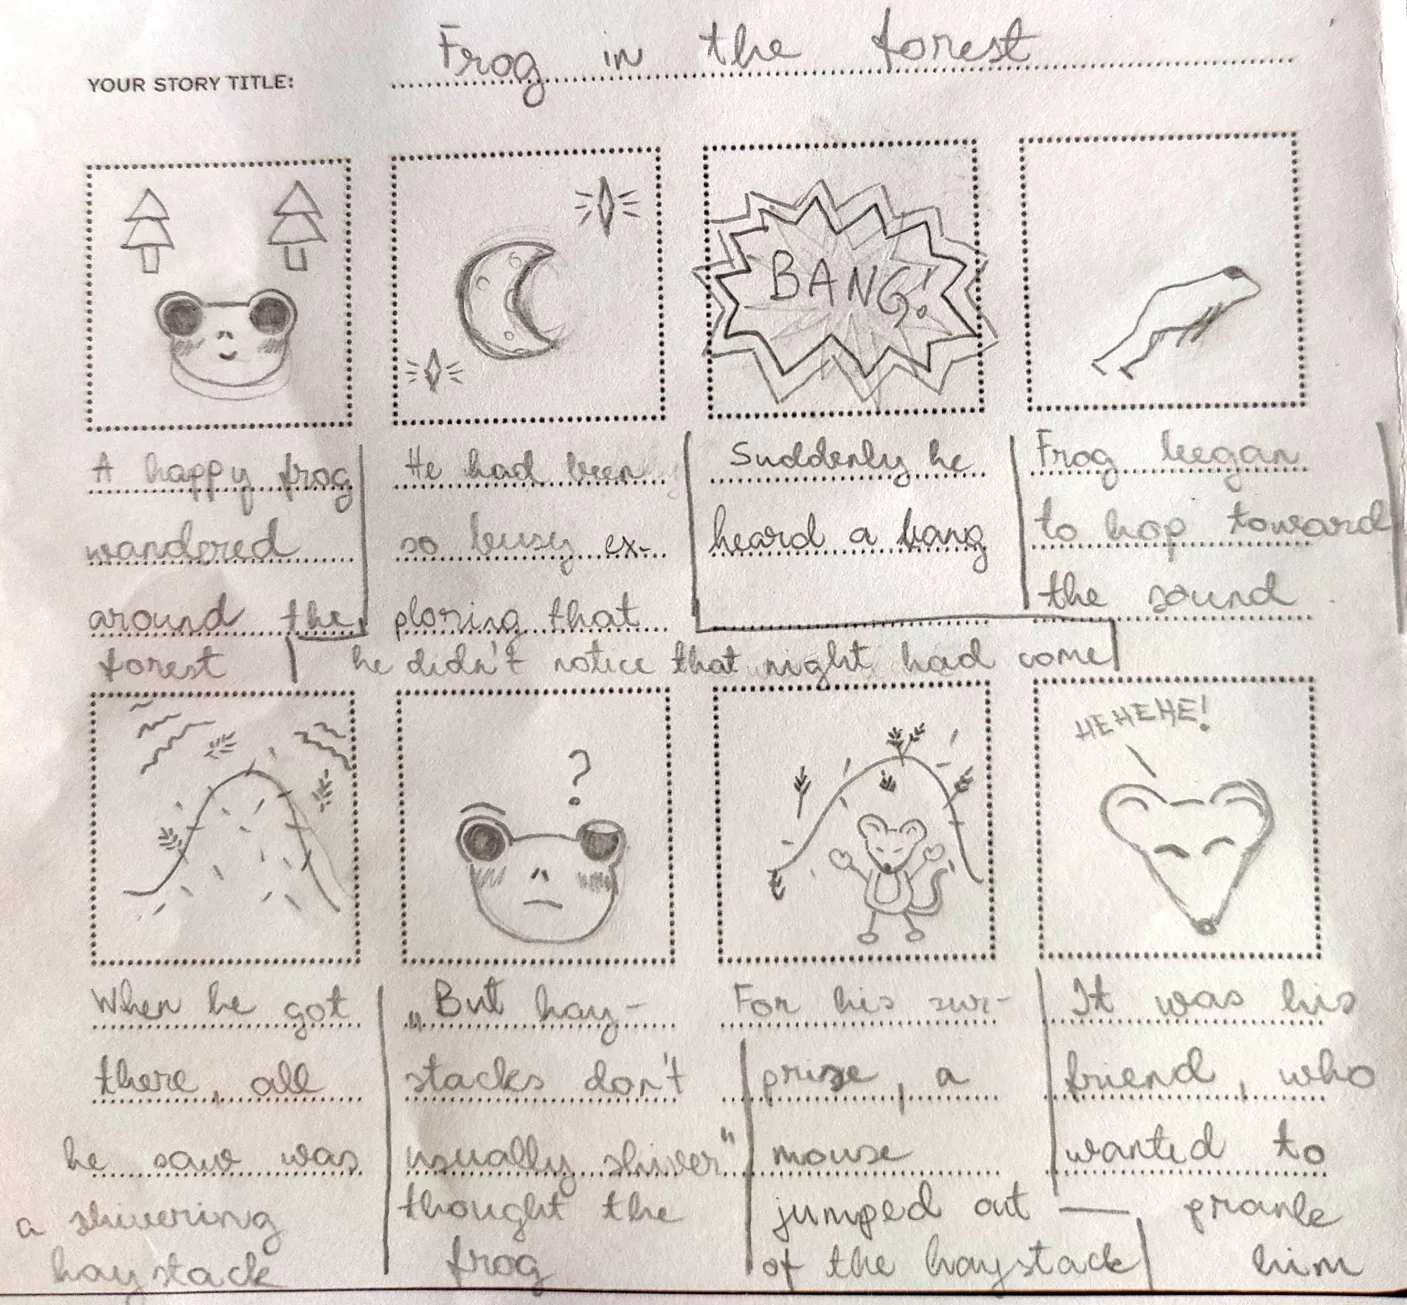 YOUR STORY TITLE: Frog in the forest
A happy frog
wandered
around the
forest
He had been
so busy ex-
ploring that
he didn't notice that night had come
BANG!
Suddenly he
heard a bang
Frog began
to hop toward
the sound
When he got
there, all
he saw was
a shivering
haystack
?
„But hay-
stacks don't
usually shiver"
thought the
frog
For his sur-
prize, a
mouse
jumped out
of the haystack
HEHEHE!
It was his
friend, who
wanted to
prank
him